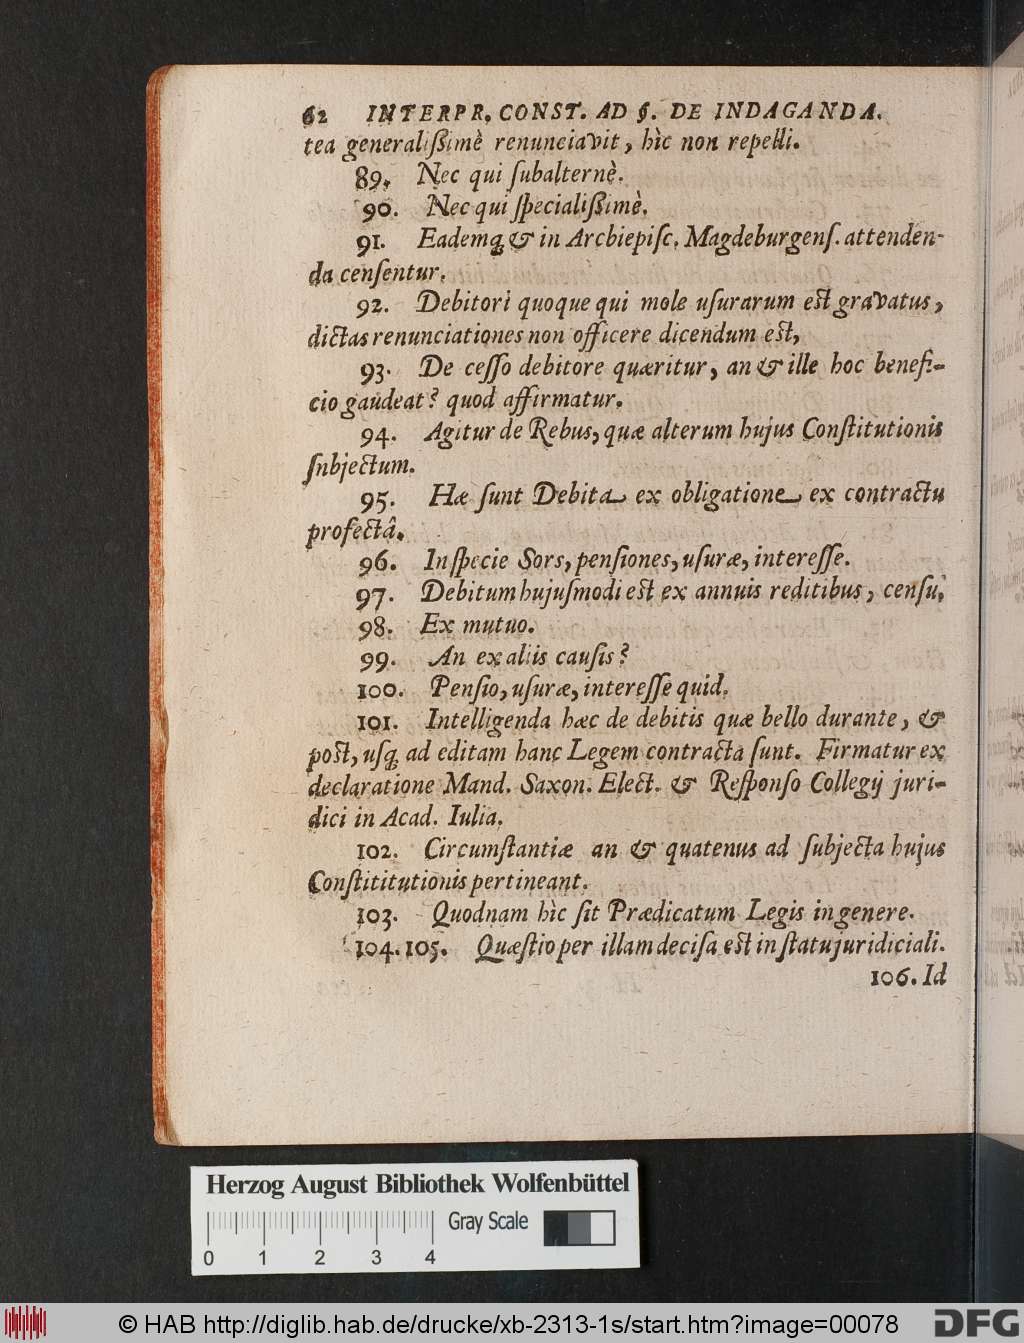 62 INTERPR. CONST. AD §. DE INDAGANDA.
tea generalißimè renunciavit, hìc non repelli.
89. Nec qui ſubalternè.
90. Nec qui ſpecialißimè.
91. Eademq́; & in Arcbiepiſc. Magdeburgenſ. attenden-
da cenſentur.
92. Debitori quoque qui mole uſurarum eſt gravatus,
dictas renunciationes non officere dicendum eſt,
93. De ceſſo debitore quæritur, an & ille hoc benefi-
cio gaudeat? quod affirmatur.
94. Agitur de Rebus, quæ alterum hujus Conſtitutionis
ſnbjectum.
95. Hæ ſunt Debita ex obligatione ex contractu
profectâ.
96. In ſpecie Sors, penſiones, uſuræ, intereſſe.
97. Debitum hujuſmodi eſt ex annuis reditibus, cenſu,
98. Ex mutuo.
99. An ex aliis cauſis?
100. Penſio, uſuræ, intereſſe quid.
101. Intelligenda hæc de debitis quæ bello durante, &
poſt, uſq; ad editam hanc Legem contracta ſunt. Firmatur ex
declaratione Mand. Saxon. Elect. & Reſponſo Collegij juri-
dici in Acad. Iulia.
102. Circumſtantiæ an & quatenus ad ſubjecta hujus
Conſtititutionis pertineant.
103. Quodnam hìc ſit Prædicatum Legis in genere.
104. 105. Quæſtio per illam deciſa eſt in ſtatu juridiciali.
106. Id
Herzog August Bibliothek Wolfenbüttel
Gray Scale
0 1 2 3 4
© HAB http://diglib.hab.de/drucke/xb-2313-1s/start.htm?image=00078
DFG